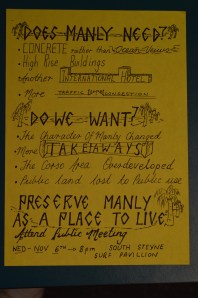 DOES MANLY NEED?
• CONCRETE rather than
• High Rise Buildings
• Another INTERNATIONAL HOTEL
• More TRAFFIC CONGESTION
DO WE WANT?
• The Character Of Manly Changed
• More TAKEAWAYS
• The Corso Area Overdeveloped
• Public Land lost to Public use
PRESERVE MANLY
AS A PLACE TO LIVE
Attend Public Meeting
WED - NOV 6TH - 8pm SOUTH STEYNE
SURF PAVILLION